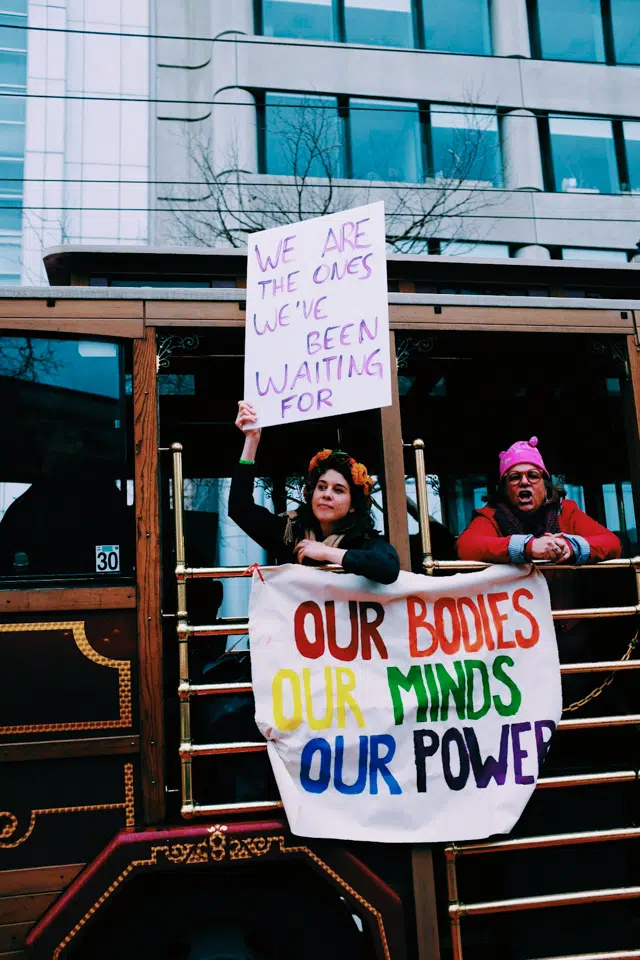 WE ARE
THE ONES
WE'VE
BEEN
WAITING
FOR
OUR BODIES
OUR MINDS
OUR POWER
30